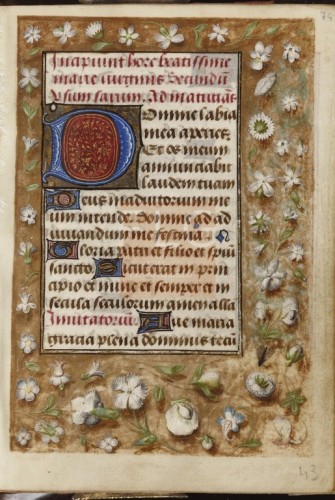 Incipiunt hore beatissime
marie virginis secundū
vsum sarum. Ad matutinas
Domine labia
mea aperies.
Et os meum
annunciabit
laudem tuam
Deus in adiutorium me
um intende. Domine ad ad
iuuandum me festina
Gloria patri et filio et spiri
sancto Sicut erat in prin
cipio et nunc et semper et in
secula seculorum amen alla
Inuitatoriū. Aue maria
gracia plena dominus tecū
43